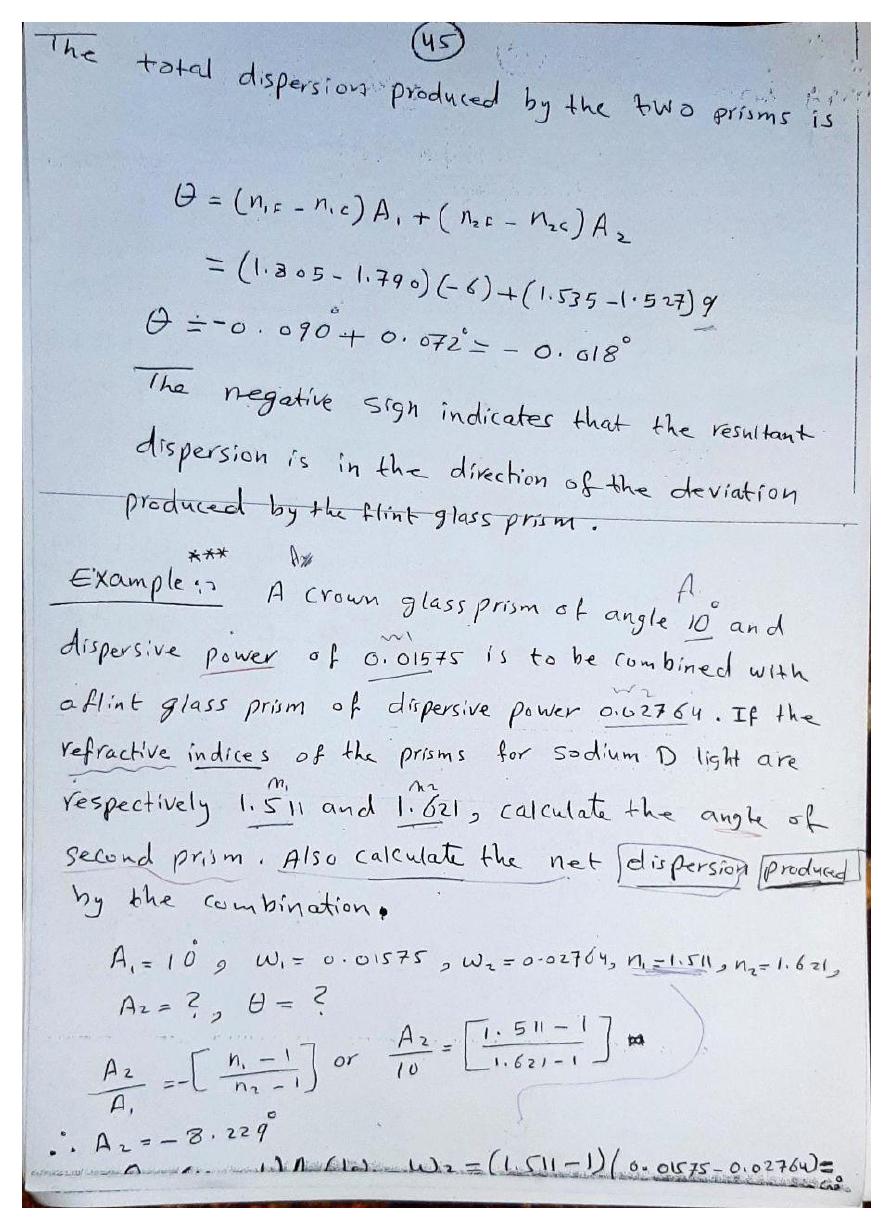 45
The total dispersion produced by the two prisms is
θ = (n₁F - n₁C) A₁ + (n₂F - n₂C) A₂
= (1.805 - 1.790) (-6) + (1.535 - 1.527) 9
θ = -0.090° + 0.072° = - 0.018°
The negative sign indicates that the resultant
dispersion is in the direction of the deviation
produced by the flint glass prism.
***
Example:
A
A crown glass prism of angle 10° and
w1
dispersive power of 0.01575 is to be combined with
w2
a flint glass prism of dispersive power 0.02764. If the
refractive indices of the prisms for sodium D light are
n₁ n2
respectively 1.511 and 1.621, calculate the angle of
second prism. Also calculate the net dispersion produced
by the combination.
A₁ = 10°, W₁ = 0.01575, W₂ = 0.02764, n₁ = 1.511, n₂ = 1.621,
A₂ = ?, θ = ?
A₂/A₁ = -[n₁ - 1 / n₂ - 1] or A₂/10 = [1.511 - 1 / 1.621 - 1]
∴ A₂ = - 8.229°
W₂ = (1.511 - 1) (0.01575 - 0.02764) =